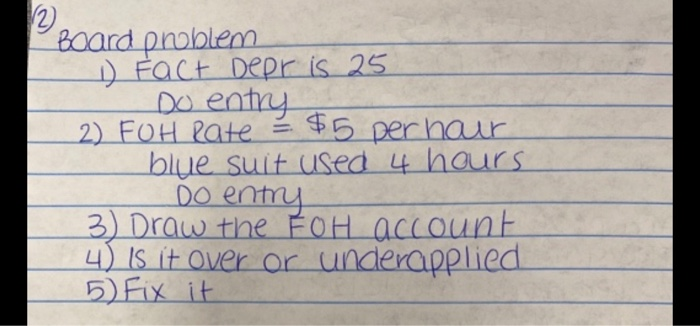 12)
Board problem
1) Fact Depr is 25
Do entry
2) FOH Rate = $5 per hour
blue suit used 4 hours
Do entry
3) Draw the FOH account
4) Is it over or underapplied
5) Fix it